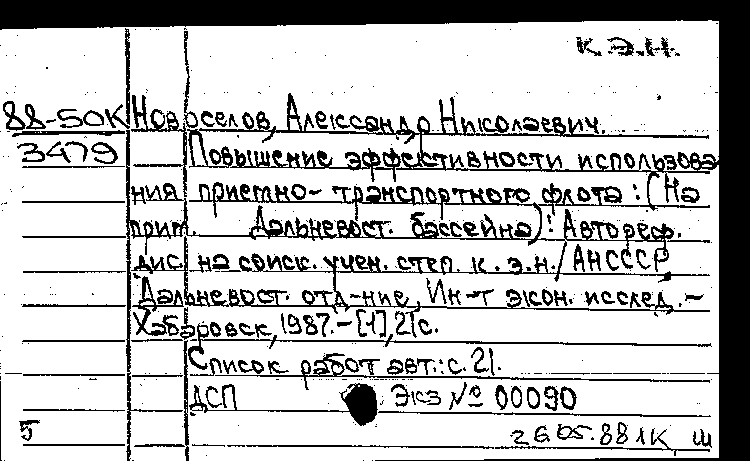 К.Э.Н.
88-50К Новоселов, Александр Николаевич.
3479 Повышение эффективности использова-
ния приемно-транспортного флота : (На
прим. Дальневост. бассейна) : Автореф.
дис. на соиск. учен. степ. к.э.н. / АНСССР,
Дальневост. отд-ние, Ин-т экон. исслед. –
Хабаровск, 1987. – [1], 21 с.
Список работ авт.: с. 21.
ДСП Экз № 00090
5 26.05.88 1К, Ш